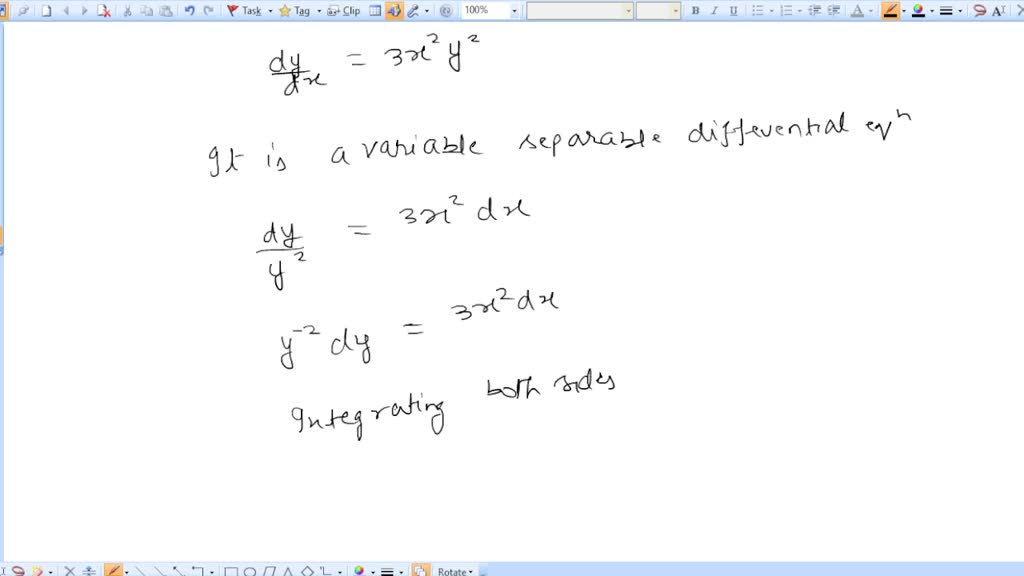 Task Tag Clip 100% B I U A
dy/dx = 3x² y²
It is a variable separable differential eqⁿ
dy/y² = 3x² dx
y⁻² dy = 3x² dx
Integrating both sides
Rotate